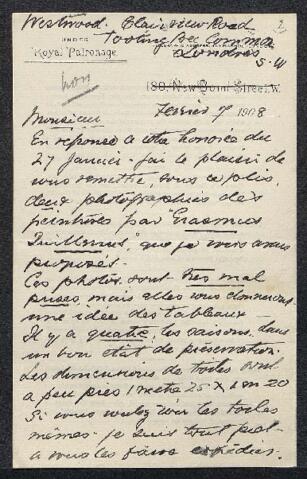 Westwood. Blairview Road
UNDER
Royal Patronage.
Tooting Bec Common
Londres
S.W
180, New Bond Street, W.
Février 7 1908
Monsieur
En réponse à votre honorée du
27 Janvier - j'ai le plaisir de
vous remettre, sous ce plis,
deux photographies des
peintures par "Erasmus
Quillenus", que je vous avais
proposés.
Ces photos. sont très mal
prises, mais elles vous donneront
une idée des tableaux -
Il y a quatre, les saisons, dans
un bon état de préservation.
Les dimensions de toiles sont
à peu près 1 mètre 25 x 1 m 20
Si vous voulez voir les toiles
mêmes - je suis tout prêt
à vous les faire expédier.